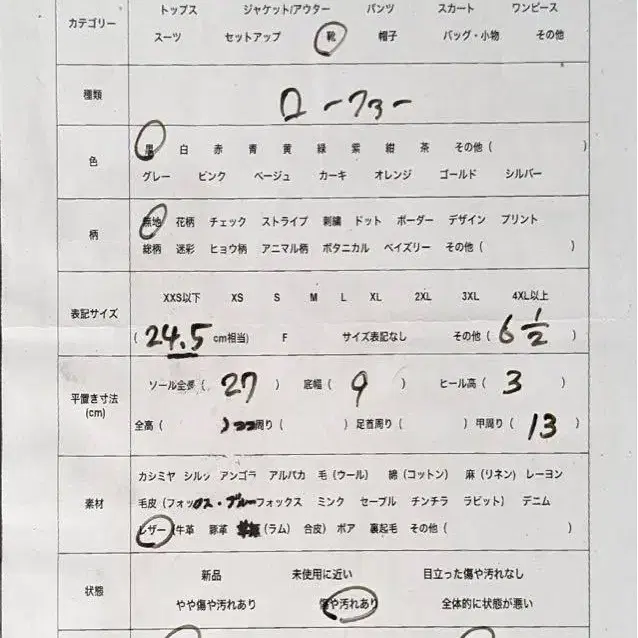 カテゴリー
トップス ジャケット/アウター パンツ スカート ワンピース
スーツ セットアップ 靴 帽子 バッグ・小物 その他
種類
ローファー
色
黒 白 赤 青 黄 緑 紫 紺 茶 その他 ( )
グレー ピンク ベージュ カーキ オレンジ ゴールド シルバー
柄
無地 花柄 チェック ストライプ 刺繍 ドット ボーダー デザイン プリント
総柄 迷彩 ヒョウ柄 アニマル柄 ボタニカル ペイズリー その他 ( )
表記サイズ
XXS以下 XS S M L XL 2XL 3XL 4XL以上
( 24.5 cm相当) F サイズ表記なし その他 ( 6 1/2 )
平置き寸法
(cm)
ソール全長 ( 27 ) 底幅 ( 9 ) ヒール高 ( 3 )
全高 ( ) 周り ( ) 足首周り ( ) 甲周り ( 13 )
素材
カシミヤ シルク アンゴラ アルパカ 毛 (ウール) 綿 (コットン) 麻 (リネン) レーヨン
毛皮 (フォックス・ブルーフォックス ミンク セーブル チンチラ ラビット) デニム
レザー (牛革 豚革 (ラム) 合皮) ボア 裏起毛 その他 ( )
状態
新品 未使用に近い 目立った傷や汚れなし
やや傷や汚れあり 傷や汚れあり 全体的に状態が悪い